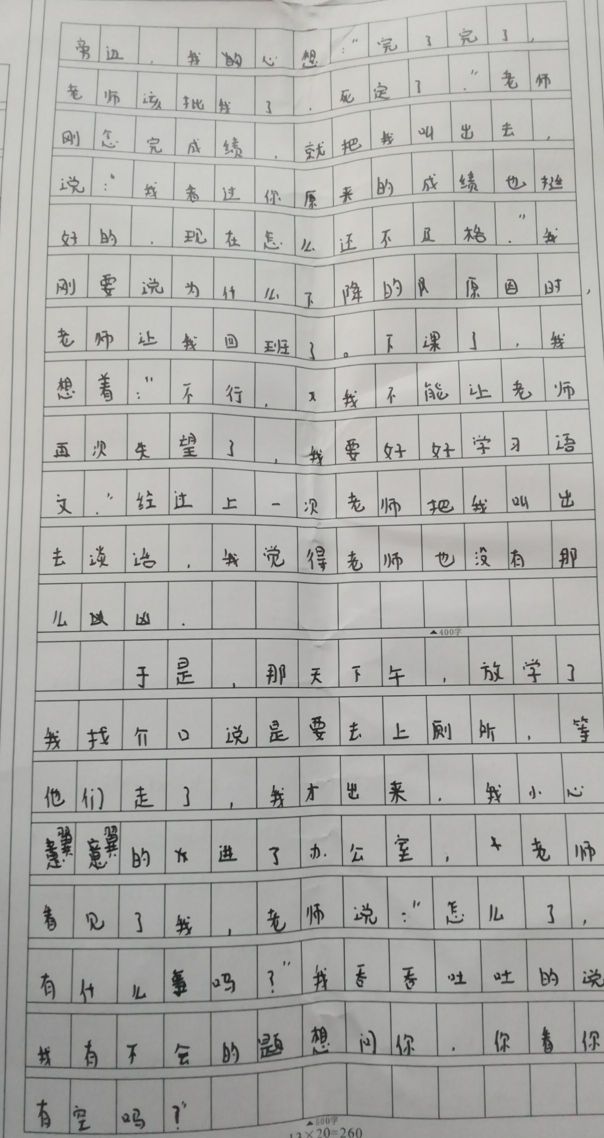 旁边，我的心想："完了完了，
老师该批我了，死定了。"老师
刚念完成绩，就把我叫出去，
说："我看过你原来的成绩也挺
好的，现在怎么还不及格。"我
刚要说为什么下降的原因时，
老师让我回班了。下课了，我
想着："不行，我不能让老师
再次失望了，我要好好学习语
文。"经过上一次老师把我叫出
去谈话，我觉得老师也没有那
么凶。
▲400字
于是，那天下午，放学了
我找介口说是要去上厕所，等
他们走了，我才出来。我小心
翼翼的进了办公室，老师
看见了我，老师说："怎么了，
有什么事吗？"我吞吞吐吐的说
我有不会的题想问你，你看你
有空吗？"
▲500字
13×20=260